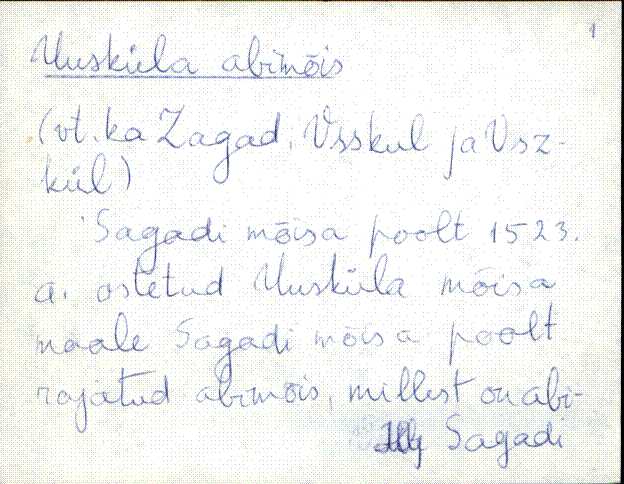 1
Uusküla abimõis
(vt. ka Zagad, Vsskul ja Vsz-
kül)
Sagadi mõisa poolt 1523.
a. ostetud Uusküla mõisa
maale Sagadi mõisa poolt
rajatud abimõis, millest on abi-
Sagadi